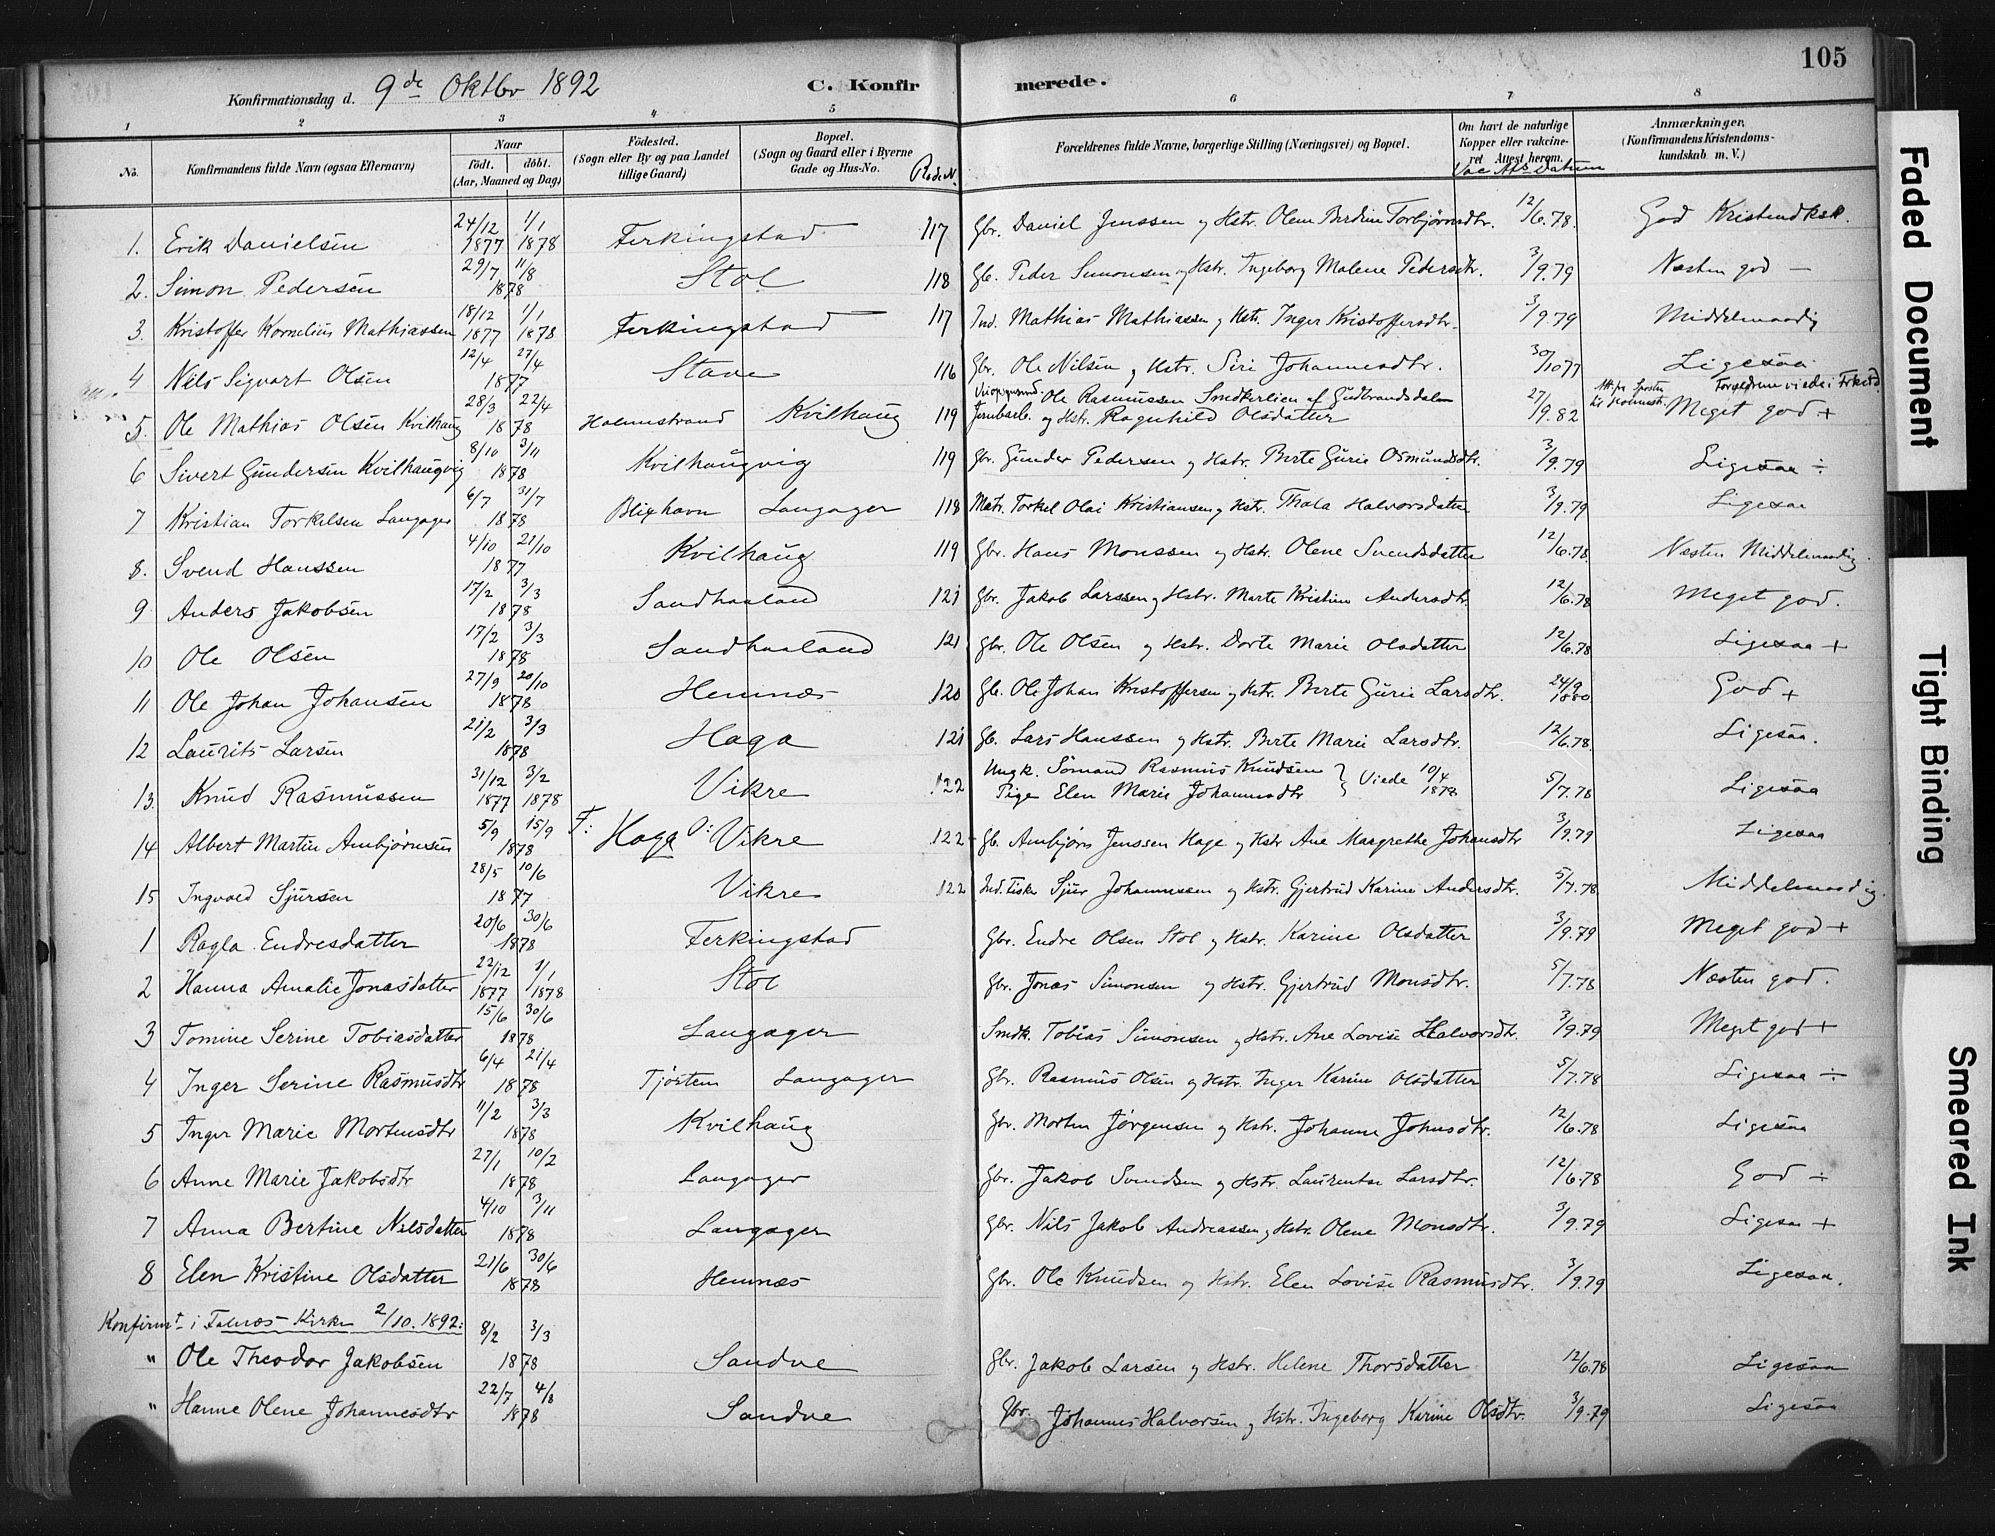 105
Konfirmationsdag d. 9de Oktbr 1892 C. Konfirmerede.
1 2 3 4 5 6 7 8
No. Konfirmandens fulde Navn (ogsaa Efternavn) Naar født. døbt. (Aar, Maaned og Dag) Födested. (Sogn eller By og paa Landet tillige Gaard) Bopæl. (Sogn og Gaard eller i Byerne Gade og Hus-No. Rode N. Forældrenes fulde Navne, borgerlige Stilling (Næringsvei) og Bopæl. Om havt de naturlige Kopper eller vaccineret Attest herom. Vac Atts Datum Anmærkninger, (Konfirmandens Kristendomskundskab m. V.)
1. Erik Danielsen 24/12 1877 1/1 1878 Ferkingstad 117 Gbr. Daniel Jenssen og Hstr. Olene Berdine Torbjørnsdtr. 12/6.78. God Kristendksk.
2. Simon Pedersen 29/7 11/8 1878 Stol 118 Gb. Peder Simonsen og Hstr. Ingeborg Malene Pedersdtr. 3/9.79 Næsten god —
3. Kristoffer Kornelius Mathiassen 18/12 1877 1/1 1878 Ferkingstad 117 Ind. Mathias Mathiassen og Hstr. Inger Kristoffersdtr. 3/9.79 Middelmaadig
4 Nils Sigvart Olsen 12/4 27/4 1877 Stave 116 Gbr. Ole Nilsen og Hstr. Siri Johannesdtr. 30/10 77 Ligesaa
5. Ole Mathias Olsen Kvilhaug 28/3 22/4 1878 Holmestrand Kvilhaug 119 Ole Rasmussen af Gudbrandsdalen og Hstr. Ragnhild Olsdatter 27/9.82 Meget god +
6 Sivert Gundersen Kvilhaugvig 8/10 3/11 1878 Kvilhaugvig 119 Gbr. Gunder Pedersen og Hstr. Berte Gurie Osmundsdtr. 3/9.79 Ligesaa ÷
7 Kristian Torkelsen Langager 6/7 31/7 1878 Blixhavn Langager 118 Matr. Torkel Olai Kristiansen og Hstr. Thala Halvorsdatter 3/9.79 Ligesaa
8. Svend Hanssen 4/10 21/10 1877 Kvilhaug 119 Gbr. Hans Monssen og Hstr. Olene Svendsdatter 12/6.78. Næsten Middelmaadig.
9 Anders Jakobsen 17/2 3/3 1878 Sandhaaland 121 Gbr. Jakob Larssen og Hstr. Marte Kristine Andersdtr. 12/6.78 Meget god.
10 Ole Olsen 17/2 3/3 1878 Sandhaaland 121 Gbr. Ole Olsen og Hstr. Dorte Marie Olsdatter 12/6.78 Ligesaa +
11 Ole Johan Johansen 27/9 20/10 1878 Hemnæs 120 Gb. Ole Johan Kristoffersen og Hstr. Berte Gurie Larsdtr. 24/9 1880 God +
12 Laurits Larsen 21/2 3/3 1878 Haga 121 Gb. Lars Hanssen og Hstr. Berte Marie Larsdtr. 12/6.78 Ligesaa.
13. Knud Rasmussen 31/12 1877 3/2 1878 Vikre 122 Ungk. Sømand Rasmus Knudsen Pige Elen Marie Johannesdtr } Viede 10/4 1878 5/7.78 Ligesaa
14 Albert Martin Ambjørnsen 5/9 15/9 1878 F: Haga O: Vikre 122 Gb. Ambjørn Jenssen Hage og Hstr Ane Margrethe Johansdtr 3/9.79 Ligesaa
15 Ingvald Sjursen 28/5 10/6 1877 Vikre 122 Ind. Fisker Sjur Johannessen og Hstr. Gjertrud Karine Andersdtr. 5/7.78 Middelmaadig.
1 Ragla Endresdatter 20/6 30/6 1878 Ferkingstad Gbr. Endre Olsen Stol og Hstr. Karine Olsdatter 3/9.79 Meget god +
2 Hanna Amalie Jonasdatter 22/12 1877 1/1 1878 Stol Gbr. Jonas Simonsen og Hstr. Gjertrud Monsdtr. 5/7.78 Næsten god.
3 Tomine Serine Tobiasdatter 15/6 30/6 1878 Langager Smdk. Tobias Simonsen og Hstr. Ane Lovise Halvorsdtr. 3/9.79 Meget god +
4 Inger Serine Rasmusdtr 6/4 21/4 1878 Tjøstem Langager Gbr. Rasmus Olsen og Hstr. Inger Karine Olsdatter 5/7.78 Ligesaa ÷
5 Inger Marie Mortensdtr 11/2 3/3 1878 Kvilhaug Gbr. Morten Jørgensen og Hstr. Johanne Johnsdtr. 12/6.78 Ligesaa
6 Anne Marie Jakobsdtr 27/1 10/2 1878 Langager Gbr. Jakob Svendsen og Hstr. Laurentse Larsdtr. 12/6.78 God ÷
7 Anna Bertine Nilsdatter 4/10 3/11 1878 Langager Gbr. Nils Jakob Andreassen og Hstr. Olene Monsdtr. 3/9.79 Ligesaa +
8 Elen Kristine Olsdatter 21/6 30/6 1878 Hemnæs Gbr. Ole Knudsen og Hstr. Elen Lovise Rasmusdtr. 3/9.79 Ligesaa.
Konfirmt i Falnæs-Kirke 2/10.1892:
" Ole Theodor Jakobsen 8/2 3/3 1878 Sandve Gbr. Jakob Larsen og Hstr. Helene Thorsdatter 12/6.78 Ligesaa
" Hanne Olene Johannesdtr 22/7 4/8 1878 Sandve Gbr. Johannes Halvorsen og Hstr. Ingeborg Karine Olsdtr. 3/9.79 Ligesaa
Faded Document
Tight Binding
Smeared Ink